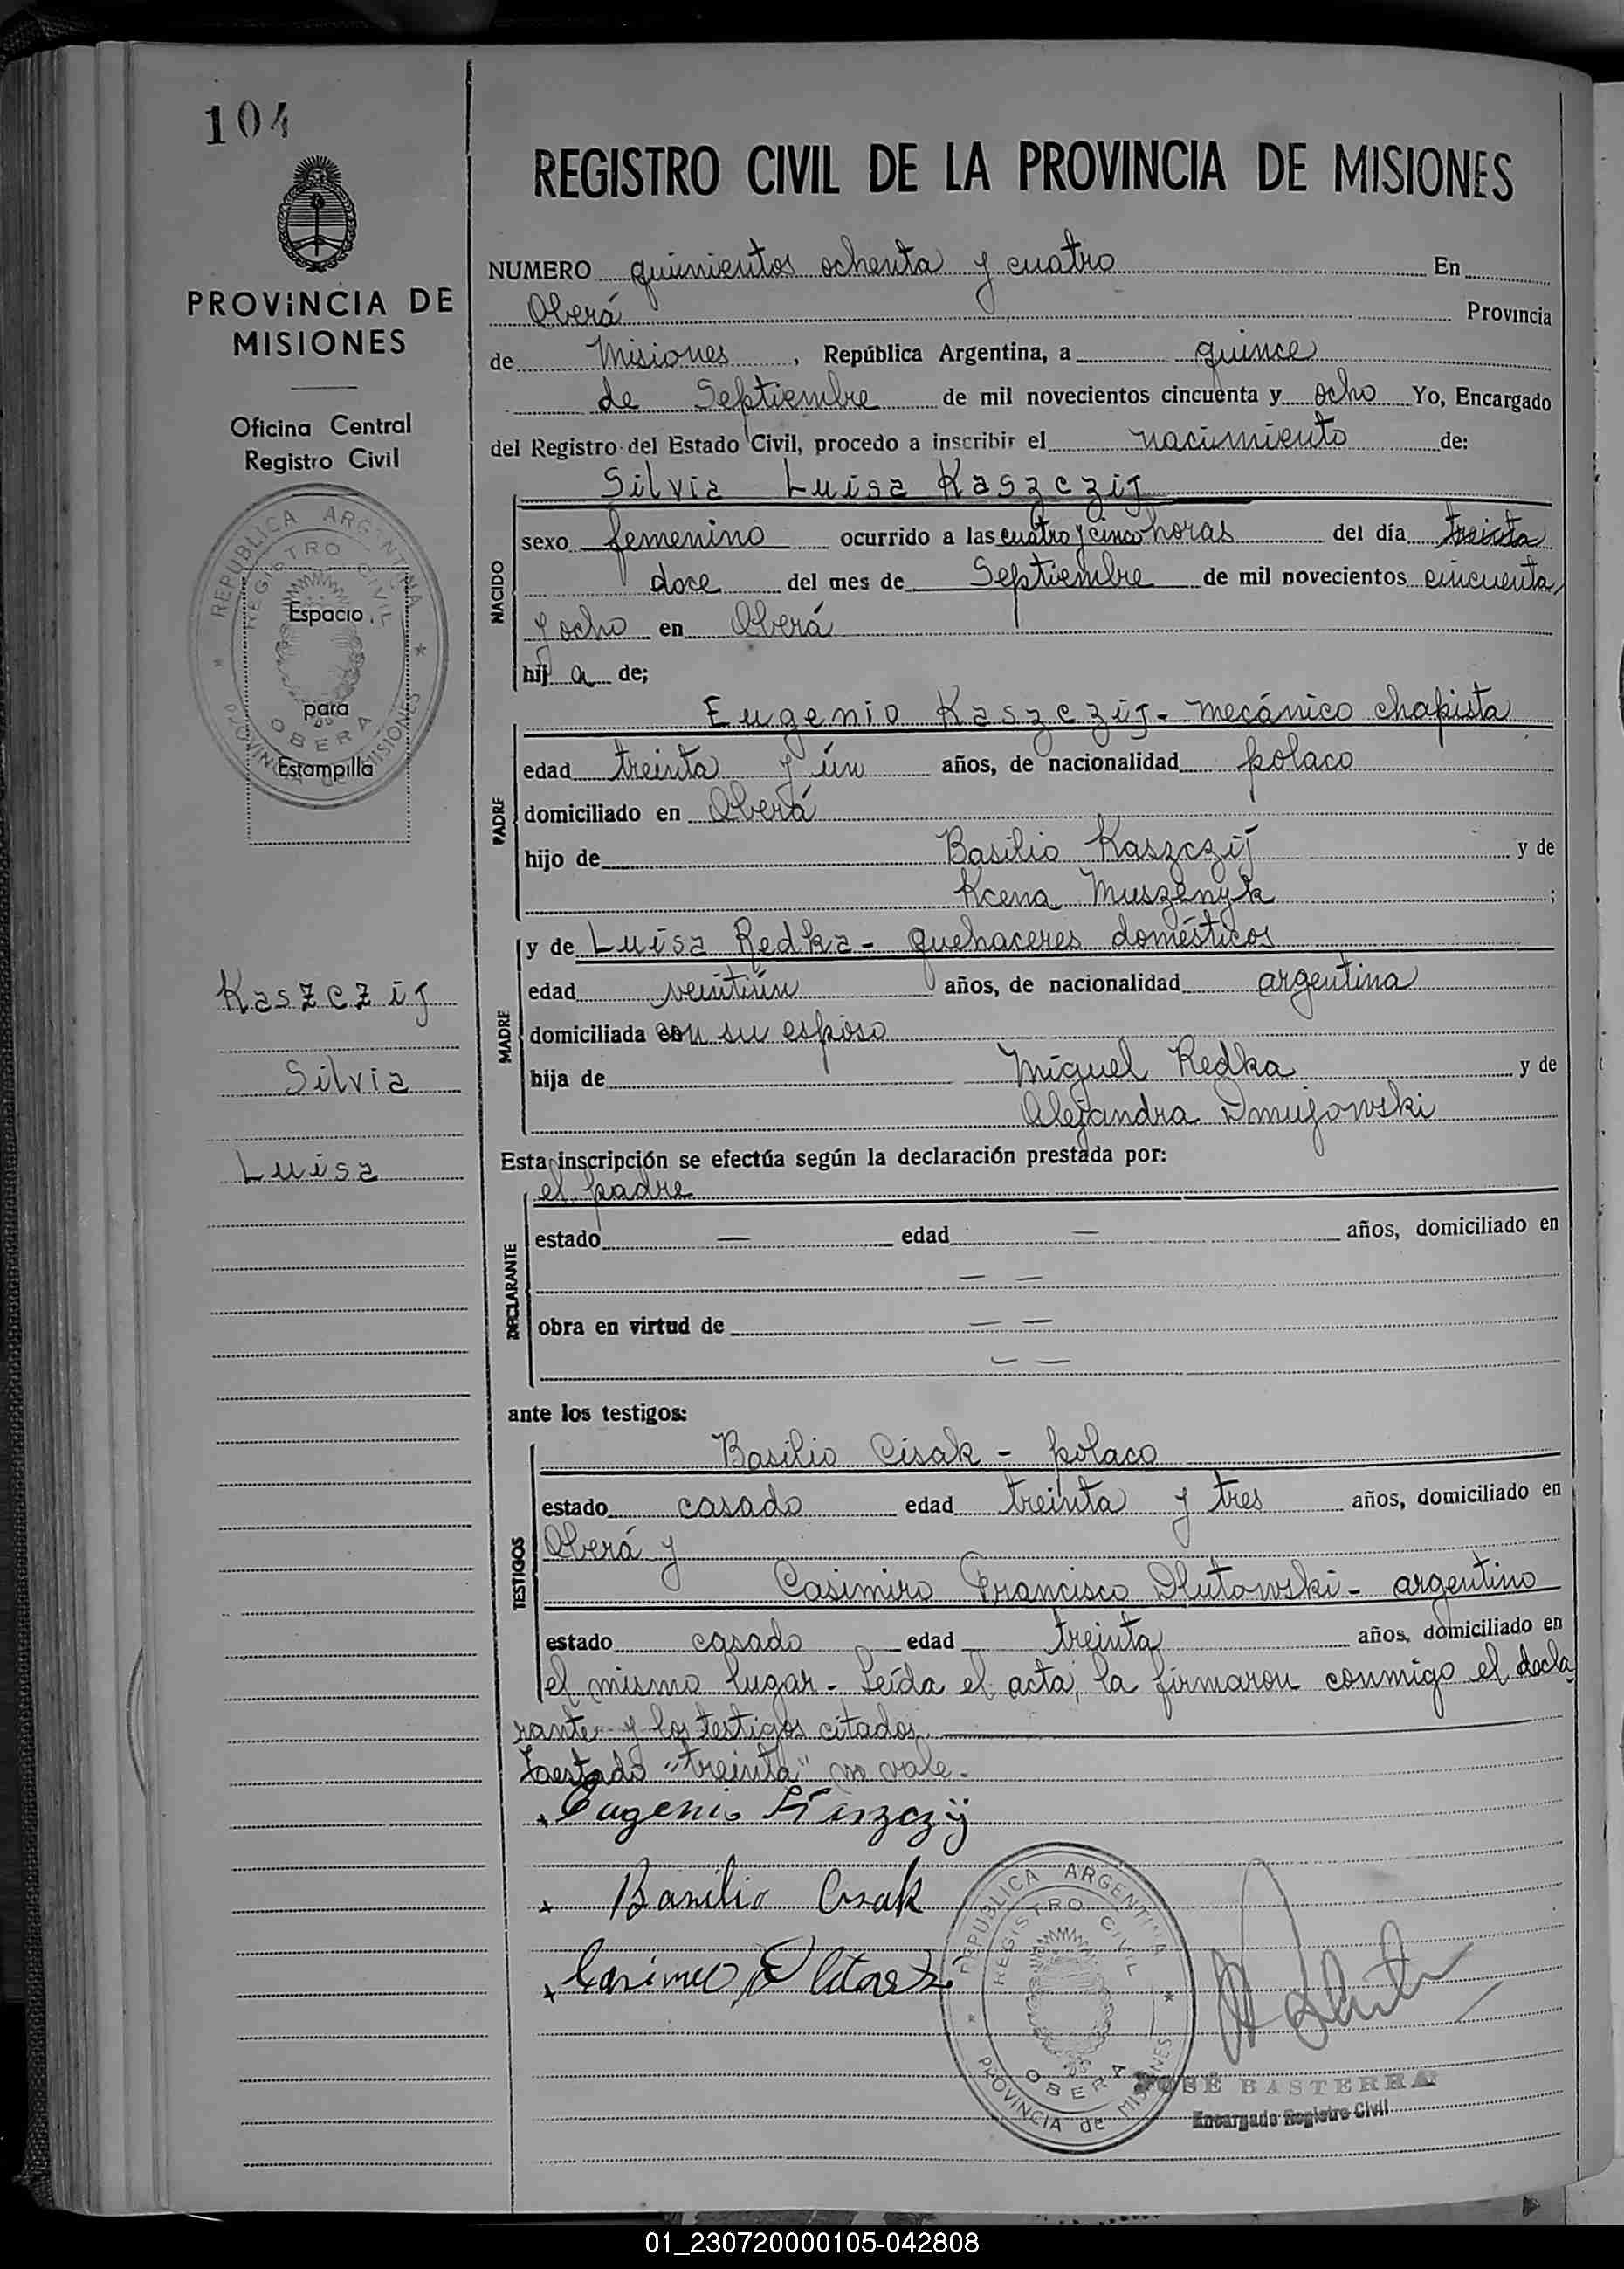 104
REGISTRO CIVIL DE LA PROVINCIA DE MISIONES
PROVINCIA DE
MISIONES
Oficina Central
Registro Civil
REPUBLICA ARGENTINA
REGISTRO CIVIL
Espacio
para
OBERA
PROVINCIA DE MISIONES
Estampilla
Kaszczij
Silvia
Luisa
NUMERO quinientos ochenta y cuatro En
Oberá Provincia
de Misiones, República Argentina, a quince
de Septiembre de mil novecientos cincuenta y ocho Yo, Encargado
del Registro del Estado Civil, procedo a inscribir el nacimiento de:
NACIDO
Silvia Luisa Kaszczij
sexo femenino ocurrido a las cuatro y cinco horas del día treinta
doce del mes de Septiembre de mil novecientos cincuenta
y ocho en Oberá
hij a de;
PADRE
Eugenio Kaszczij - mecánico chapista
edad treinta y ún años, de nacionalidad polaco
domiciliado en Oberá
hijo de Basilio Kaszczij y de
Kcena Muszenyk ;
MADRE
y de Luisa Redka - quehaceres domésticos
edad veintiún años, de nacionalidad argentina
domiciliada con su esposo
hija de Miguel Redka y de
Alejandra Dmujowski
Esta inscripción se efectúa según la declaración prestada por:
DECLARANTE
el padre
estado — edad — años, domiciliado en
— —
obra en virtud de — —
— —
ante los testigos:
TESTIGOS
Basilio Cisak - polaco
estado casado edad treinta y tres años, domiciliado en
Oberá y
Casimiro Francisco Dlutowski - argentino
estado casado edad treinta años, domiciliado en
el mismo lugar - Leída el acta, la firmaron conmigo el decla
rante y los testigos citados
Testado "treinta" no vale.
Eugenio Kaszczij
Basilio Cisak
REPUBLICA ARGENTINA
REGISTRO CIVIL
OBERA
PROVINCIA de MISIONES
JOSÉ BASTERRA
Encargado Registro Civil
01_230720000105-042808